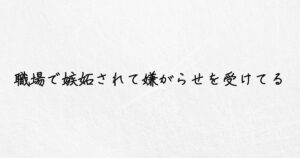 職場で嫉妬されて嫌がらせを受けてる